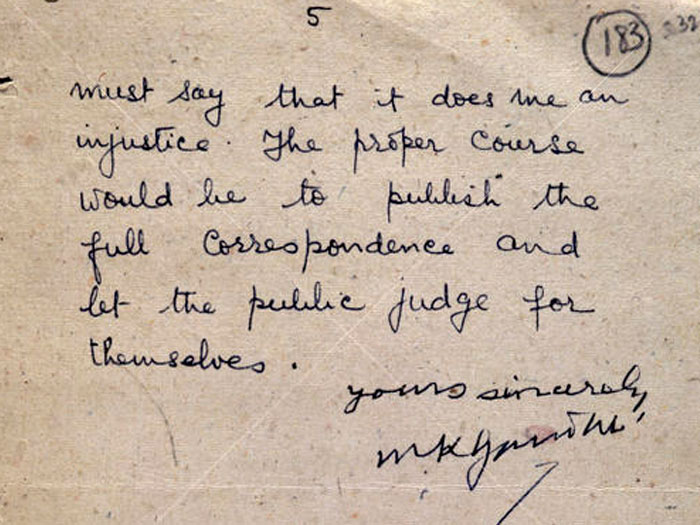 5
183
32
must say that it does me an
injustice. The proper course
would be to publish the
full correspondence and
let the public judge for
themselves.
yours sincerely,
MKGandhi